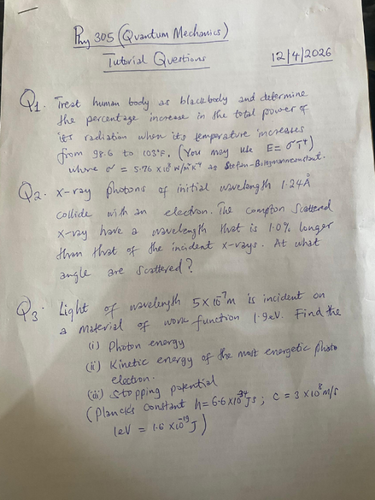 Phy 305 (Quantum Mechanics)
Tutorial Questions
12/4/2026
Q1. Treat human body as blackbody and determine
the percentage increase in the total power of
its radiation when its temperature increases
from 98.6 to 103°F. (You may use E = σT⁴)
where σ = 5.76 × 10⁸ W/m²K⁴ as Stefan-Boltzmann constant.
Q2. X-ray photons of initial wavelength 1.24Å
collide with an electron. The compton scattered
x-ray have a wavelength that is 1.0% longer
than that of the incident x-rays. At what
angle are scattered?
Q3. Light of wavelength 5×10⁻⁷m is incident on
a material of work function 1.9eV. Find the
(i) Photon energy
(ii) Kinetic energy of the most energetic photo
electron.
(iii) Stopping potential
(Planck's constant h = 6.6×10⁻³⁴Js; C = 3×10⁸ m/s
1eV = 1.6 ×10⁻¹⁹J)